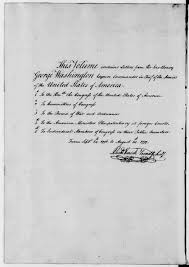 This Volume contains Letters from his Excellency
George Washington Esquire Commander in Chief of the Armies
of the United States of America.
To the Honble the Congress of the United States of America.
To Committees of Congress
To the Board of War and Ordnance
To the American Minister Plenipotentiary at foreign Courts
To Individual Members of Congress in their Public Characters
From Septr to August